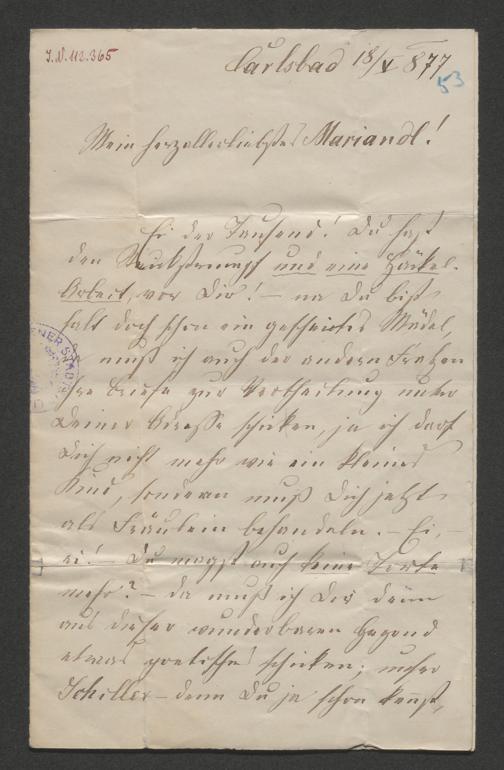 J.N. 112.365
Carlsbad 18/V 877
53
Mein herzallerliebstes Mariandl!
Ei der Tausend! Du hast
den Strumpf und eine Häkel-
Arbeit, vor Dir! – na Du bist
halt doch schon ein gescheidtes Mädel,
muß ich auch der andern Fratzen
ihre Briefe zur Vertheilung unter
Deiner Adresse schicken, ja ich darf
Dich nicht mehr wie ein kleines
Kind, sondern muß Dich jetzt
als Fräulein behandeln. – Ei, –
ei! – Du magst auch keine Torte
mehr? – da muß ich Dir denn
aus dieser wunderbaren Gegend
etwas poetisches schicken; unser
Schiller – denn Du ja schon kennst,